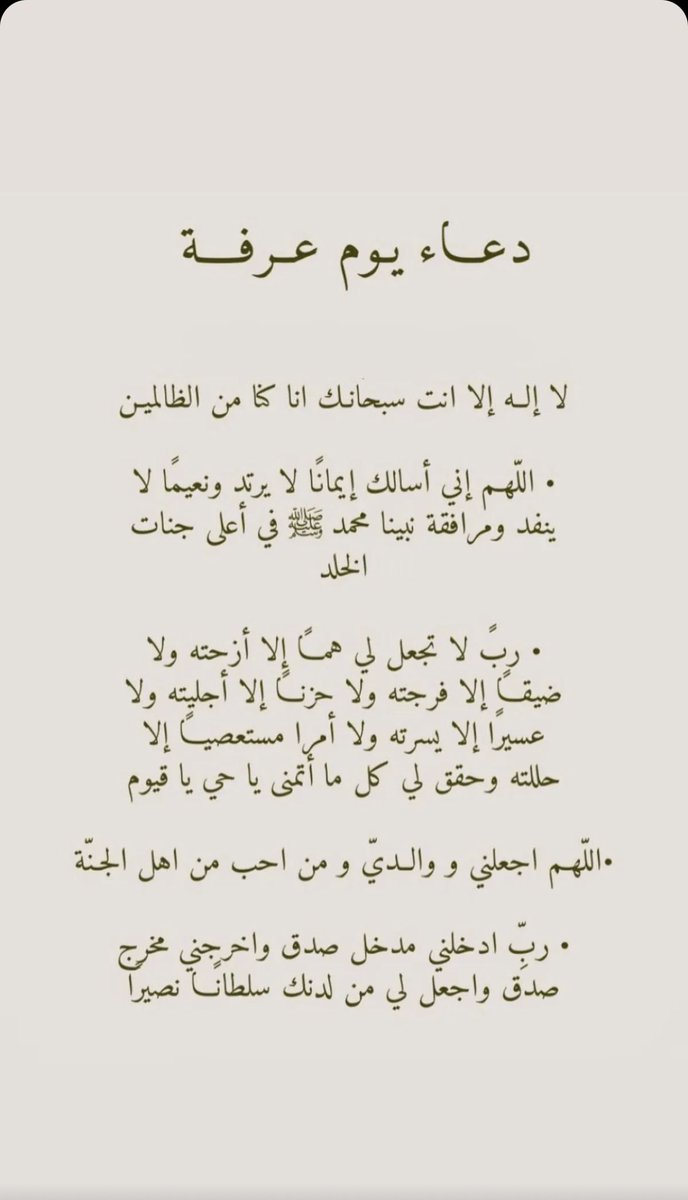 دعـــاء يـوم عـرفـــة
لا إلـه إلا انت سبحانـك انا كنا من الظالميـن
• اللّهـم إني أسالك إيمانًا لا يرتد ونعيمًا لا
ينفد ومرافقة نبينا محمد ﷺ في أعلى جنات
الخلد
• ربً لا تجعل لي همـًا إلا أزحته ولا
ضيقـًا إلا فرجته ولا حزنـًا إلا أجليته ولا
عسيرًا إلا يسرته ولا أمرا مستعصيـًا إلا
حللته وحقق لي كل ما أتمنى يا حي يا قيوم
•اللّهـم اجعلني و والـديّ و من احب من اهل الجـنّة
• ربِّ ادخلني مدخل صدق واخرجني مخرج
صدق واجعل لي من لدنك سلطانـًا نصيرًا